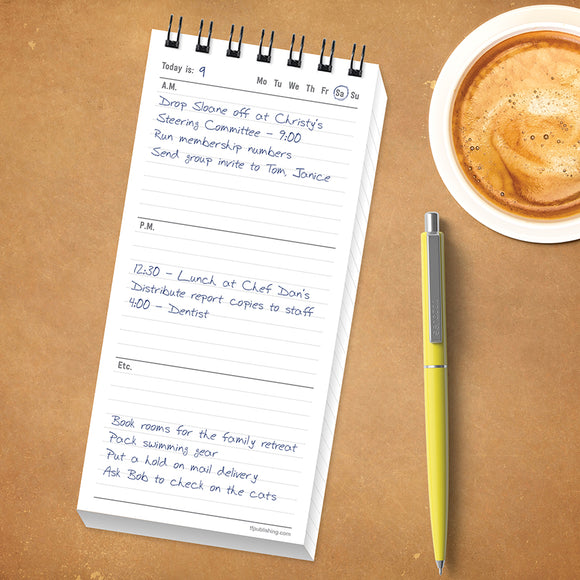 Today is: 9 Mo Tu We Th Fr Sa Su
A.M.
Drop Sloane off at Christy's
Steering Committee - 9:00
Run membership numbers
Send group invite to Tom, Janice
P.M.
12:30 - Lunch at Chef Dan's
Distribute report copies to staff
4:00 - Dentist
Etc.
Book rooms for the family retreat
Pack swimming gear
Put a hold on mail delivery
Ask Bob to check on the cats
tfpublishing.com